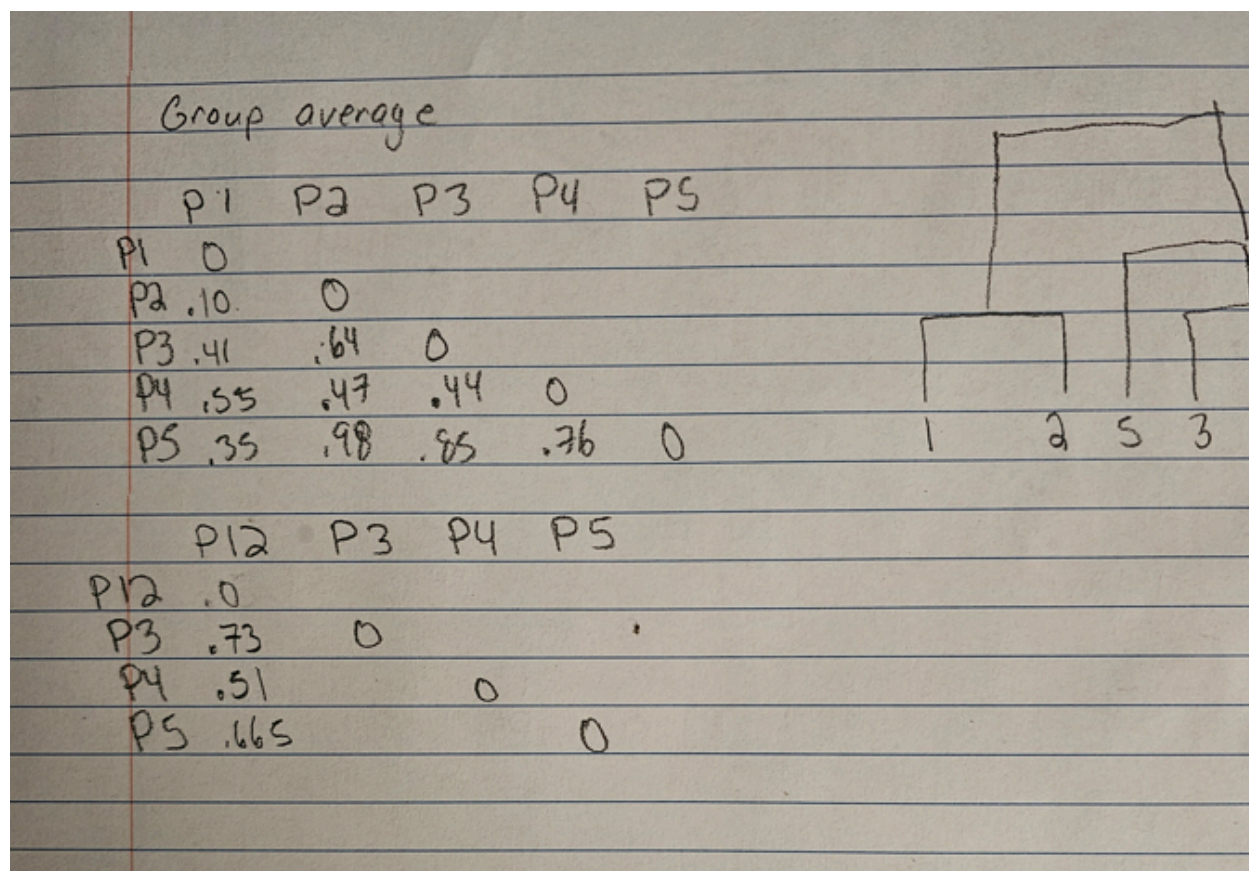 Group average
P1 P2 P3 P4 P5
P1 0
P2 .10 0
P3 .41 .64 0
P4 .55 .47 .44 0
P5 .35 .98 .85 .76 0
1 2 5 3
P12 P3 P4 P5
P12 .0
P3 .73 0
P4 .51 0
P5 .665 0